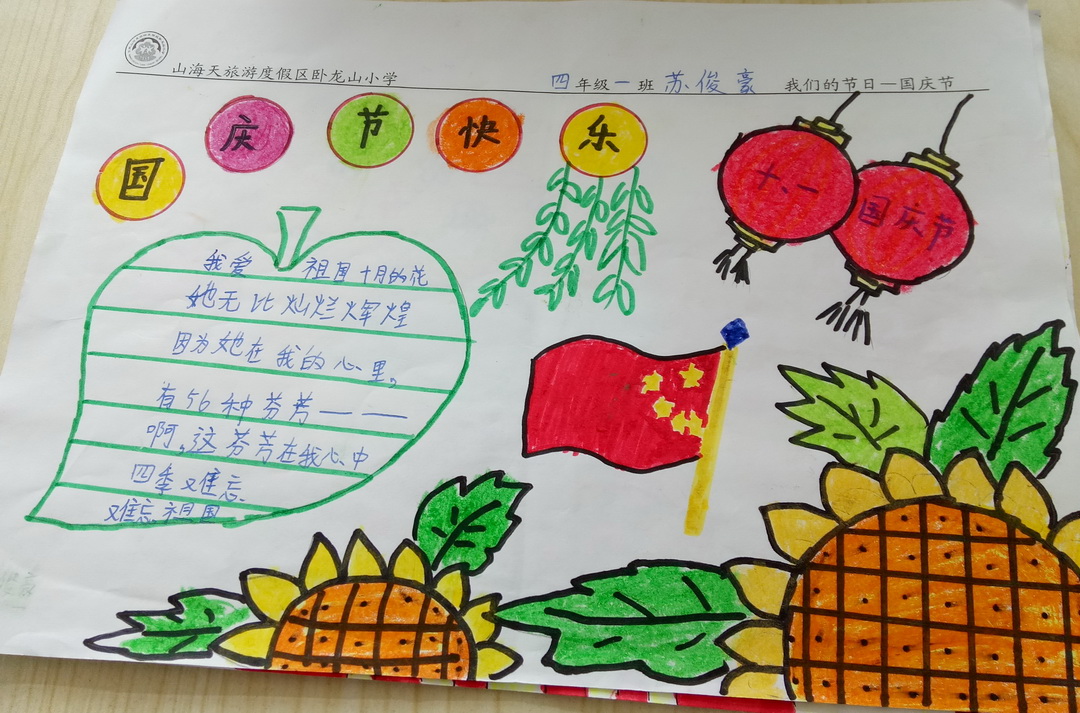 山海天旅游度假区卧龙山小学
四年级一班 苏俊豪 我们的节日—国庆节
国庆节快乐
十、一
国庆节
我爱 祖国十月的花
她无比灿烂辉煌
因为她在我的心里,
有56种芬芳——
啊,这芬芳在我心中
四季难忘
难忘祖国